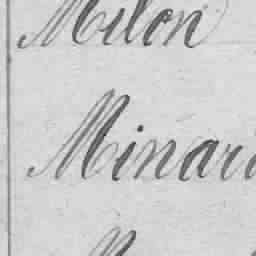 Milon
Minard